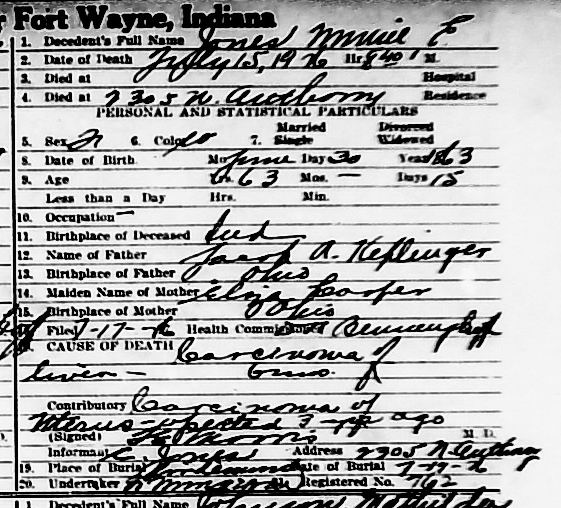 Fort Wayne, Indiana
1. Decedent's Full Name Jones Minnie E.
2. Date of Death July 15, 1926 Hr. 840 M.
3. Died at Hospital
4. Died at 2305 N. Anthony Residence
PERSONAL AND STATISTICAL PARTICULARS
5. Sex F 6. Color W 7. Married Single Divorced Widowed
8. Date of Birth Mo. June Day 30 Year 1863
9. Age Yrs. 63 Mos. — Days 15
Less than a Day Hrs. Min.
10. Occupation —
11. Birthplace of Deceased Ind
12. Name of Father Jacob A. Keplinger
13. Birthplace of Father Ohio
14. Maiden Name of Mother Eliza
15. Birthplace of Mother Ohio
Filed 7-17-26 Health Commissioner
CAUSE OF DEATH Carcinoma of
liver — 6 mos.
Contributory Carcinoma of
Uterus - operated 3 yr ago
(Signed) Morris M. D.
Informant C. Jones Address 2305 N Anthony
19. Place of Burial Lindenwood Date of Burial 7-19-26
20. Undertaker Registered No. 762
1. Decedent's Full Name Johnson Mathilda